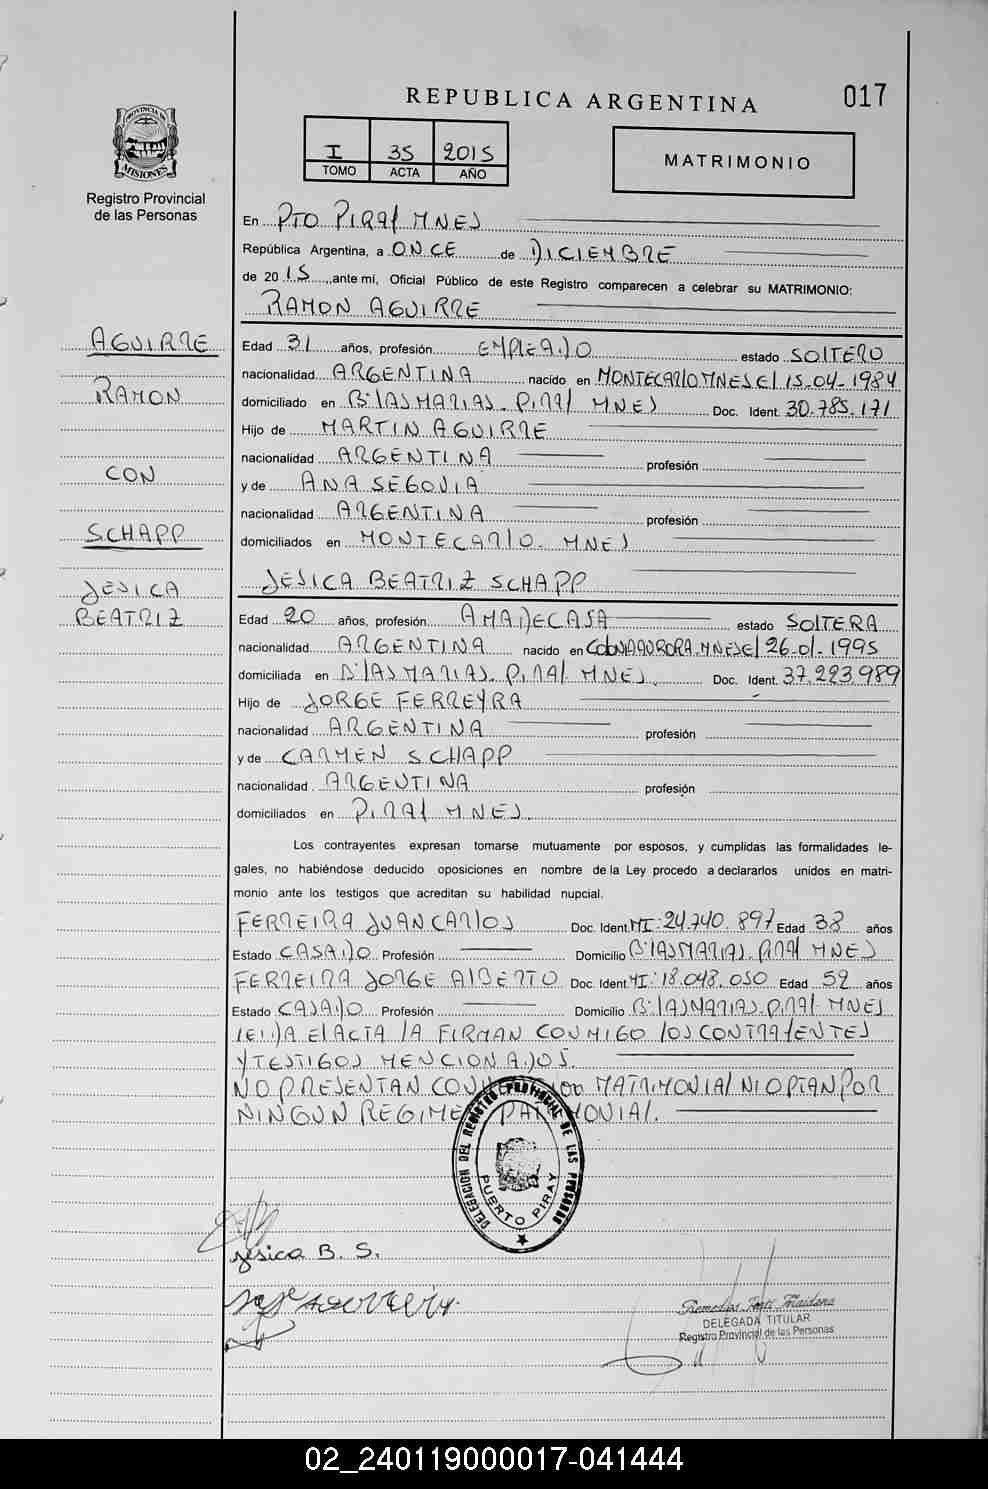 REPUBLICA ARGENTINA
017
I 35 2015
TOMO ACTA AÑO
MATRIMONIO
PROVINCIA DE
MISIONES
Registro Provincial
de las Personas
En PTO PIRAY MNES
República Argentina, a ONCE de DICIEMBRE
de 2015, ante mí, Oficial Público de este Registro comparecen a celebrar su MATRIMONIO:
RAMON AGUIRRE
AGUIRRE
RAMON
CON
SCHAPP
JESICA
BEATRIZ
Edad 31 años, profesión EMPLEADO estado SOLTERO
nacionalidad ARGENTINA nacido en MONTECARLO MNES EL 15-04-1984
domiciliado en B: LAS MARIAS. PIRAY MNES Doc. Ident. 30.785.171
Hijo de MARTIN AGUIRRE
nacionalidad ARGENTINA profesión
y de ANA SEGOVIA
nacionalidad ARGENTINA profesión
domiciliados en MONTECARLO. MNES
JESICA BEATRIZ SCHAPP
Edad 20 años, profesión AMA DE CASA estado SOLTERA
nacionalidad ARGENTINA nacido en COLONIA AURORA. MNES EL 26-01-1995
domiciliada en B: LAS MARIAS. PIRAY MNES. Doc. Ident. 37.223.989
Hijo de JORGE FERREYRA
nacionalidad ARGENTINA profesión
y de CARMEN SCHAPP
nacionalidad ARGENTINA profesión
domiciliados en PIRAY MNES.
Los contrayentes expresan tomarse mutuamente por esposos, y cumplidas las formalidades le-
gales, no habiéndose deducido oposiciones en nombre de la Ley procedo a declararlos unidos en matri-
monio ante los testigos que acreditan su habilidad nupcial.
FERREIRA JUAN CARLOS Doc. Ident. MI: 24.740.897 Edad 38 años
Estado CASADO Profesión Domicilio B: LAS MARIAS. PIRAY MNES
FERREIRA JORGE ALBERTO Doc. Ident. MI: 18.048.050 Edad 52 años
Estado CASADO Profesión Domicilio B: LAS MARIAS. PIRAY MNES
LEIDA EL ACTA LA FIRMAN CONMIGO LOS CONTRAYENTES
Y TESTIGOS MENCIONADOS.
NO PRESENTAN MATRIMONIAL NI OPTAN POR
NINGUN REGIMEN PATRIMONIAL.
DELEGACION DEL REGISTRO PROVINCIAL DE LAS PERSONAS
PUERTO PIRAY
Jesica B. S.
DELEGADA TITULAR
Registro Provincial de las Personas
02_240119000017-041444